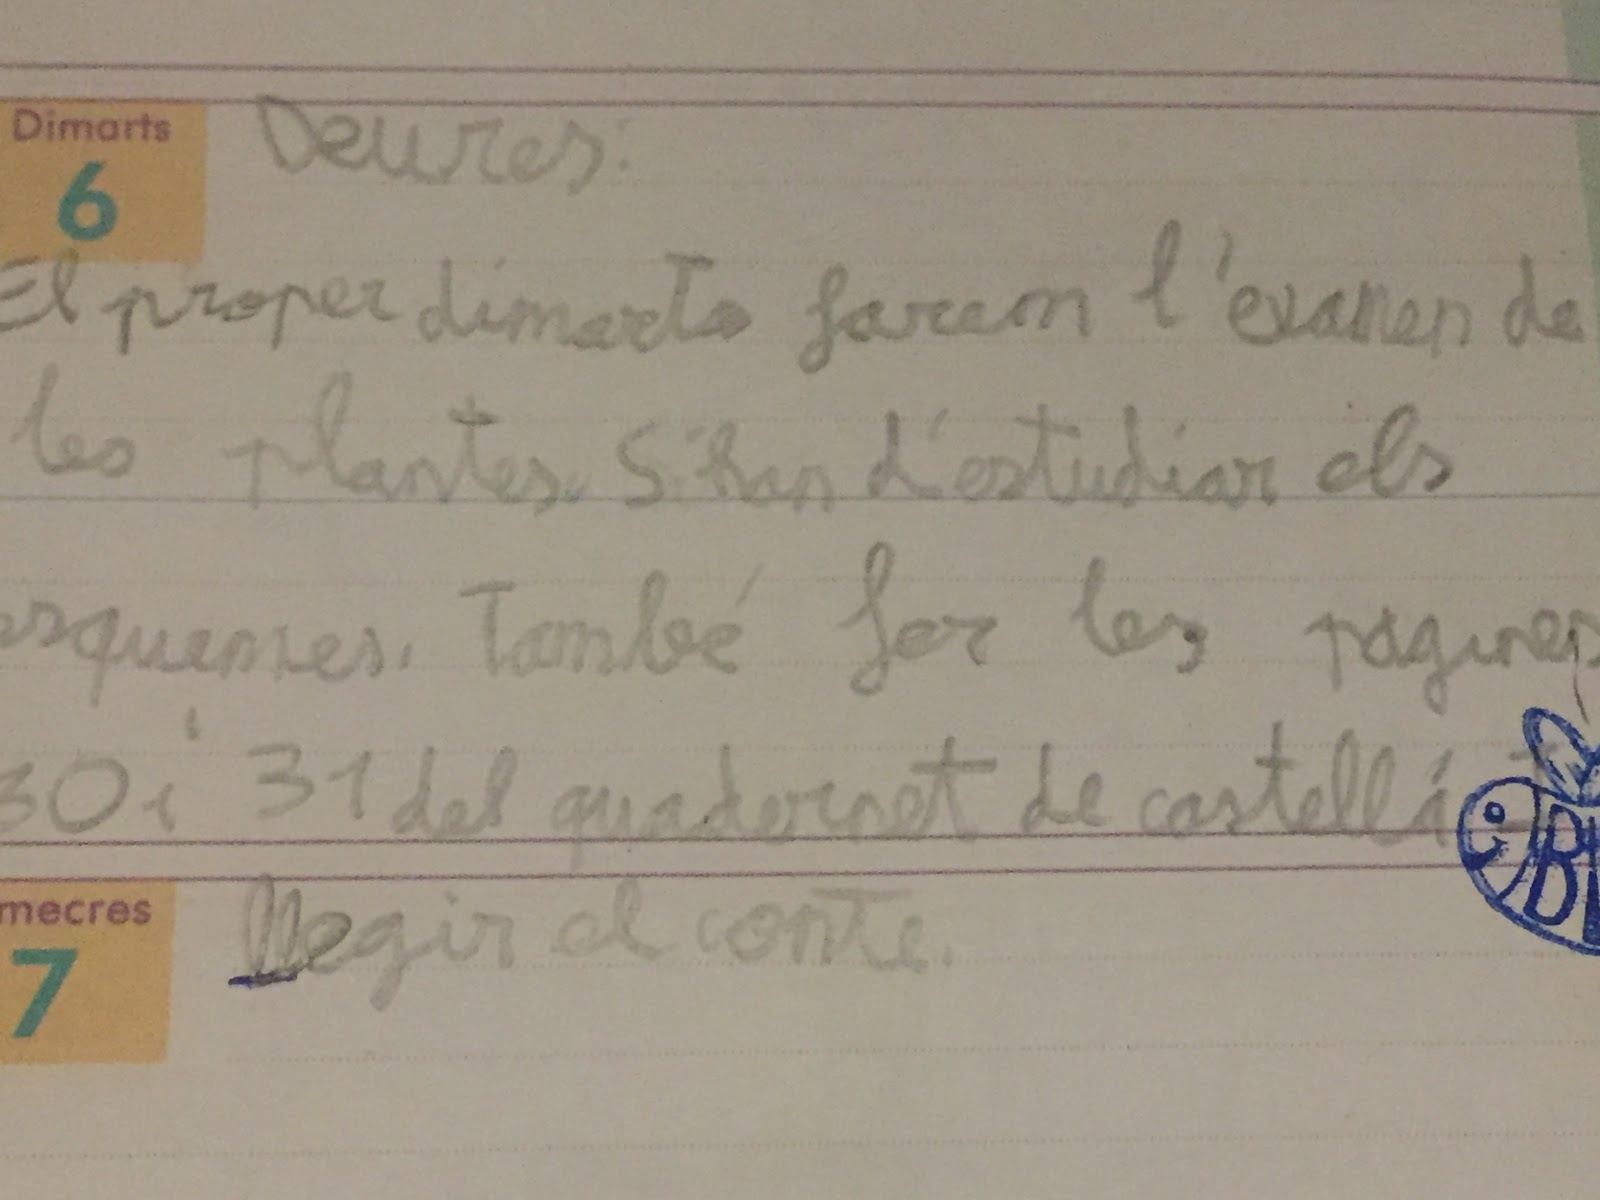 Dimarts
6
Deures:
El proper dimarts farem l'examen de
les plantes. S'han d'estudiar els
esquemes. També fer les pàgines
30 i 31 del quadernet de castellá i
mecres
7
llegir el conte.